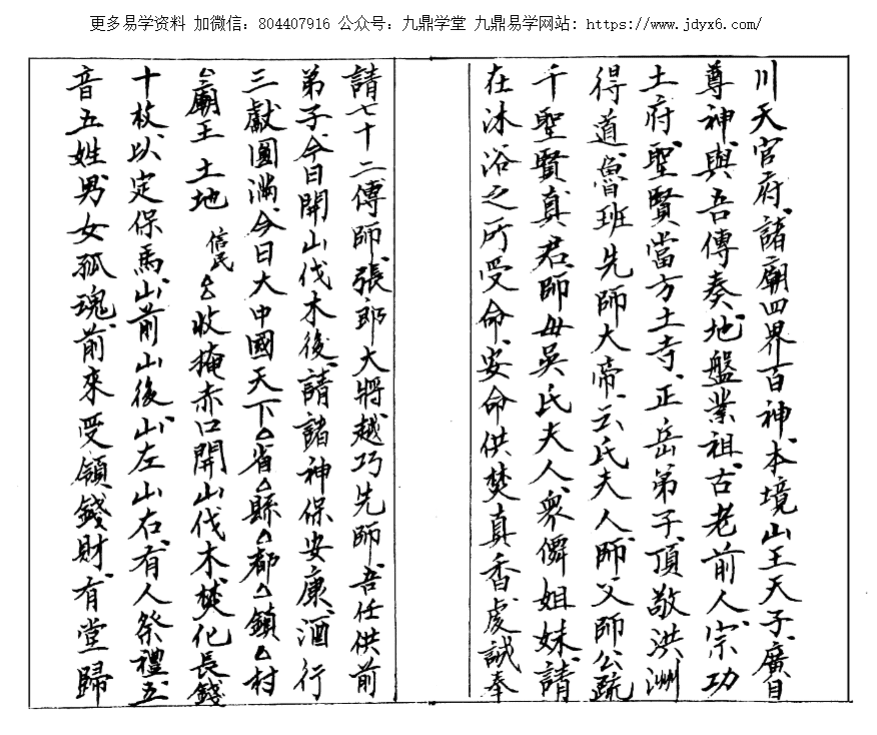 更多易学资料 加微信：804407916 公众号：九鼎学堂 九鼎易学网站：https://www.jdyx6.com/
川天官府、諸廟四界百神、本境山王天子、廣目
尊神、與吾傳奏、地盤業祖、古老前人、宗功
土府、聖賢當方土寺、正岳弟子、頂敬洪洲
得道、魯班先師大帝、云氏夫人、師父師公、疏
千聖賢真君、師母吳氏夫人、眾儕姐妹、請
在沐浴之所受命、安命供焚真香、虔誠奉
請七十二傳師、張郎大將、越巧先師、吾任供前
弟子、今日開山伐木後、請諸神保安康、酒行
三獻圓滿、今日大中國天下△省△縣△都△鎮△村
△廟王 土地 信民△△收掩赤口開山伐木、焚化長錢
十枚、以定保馬、山前山後、山左山右、有人祭禮、五
音五姓、男女孤瑰、前來受領錢財、有堂歸